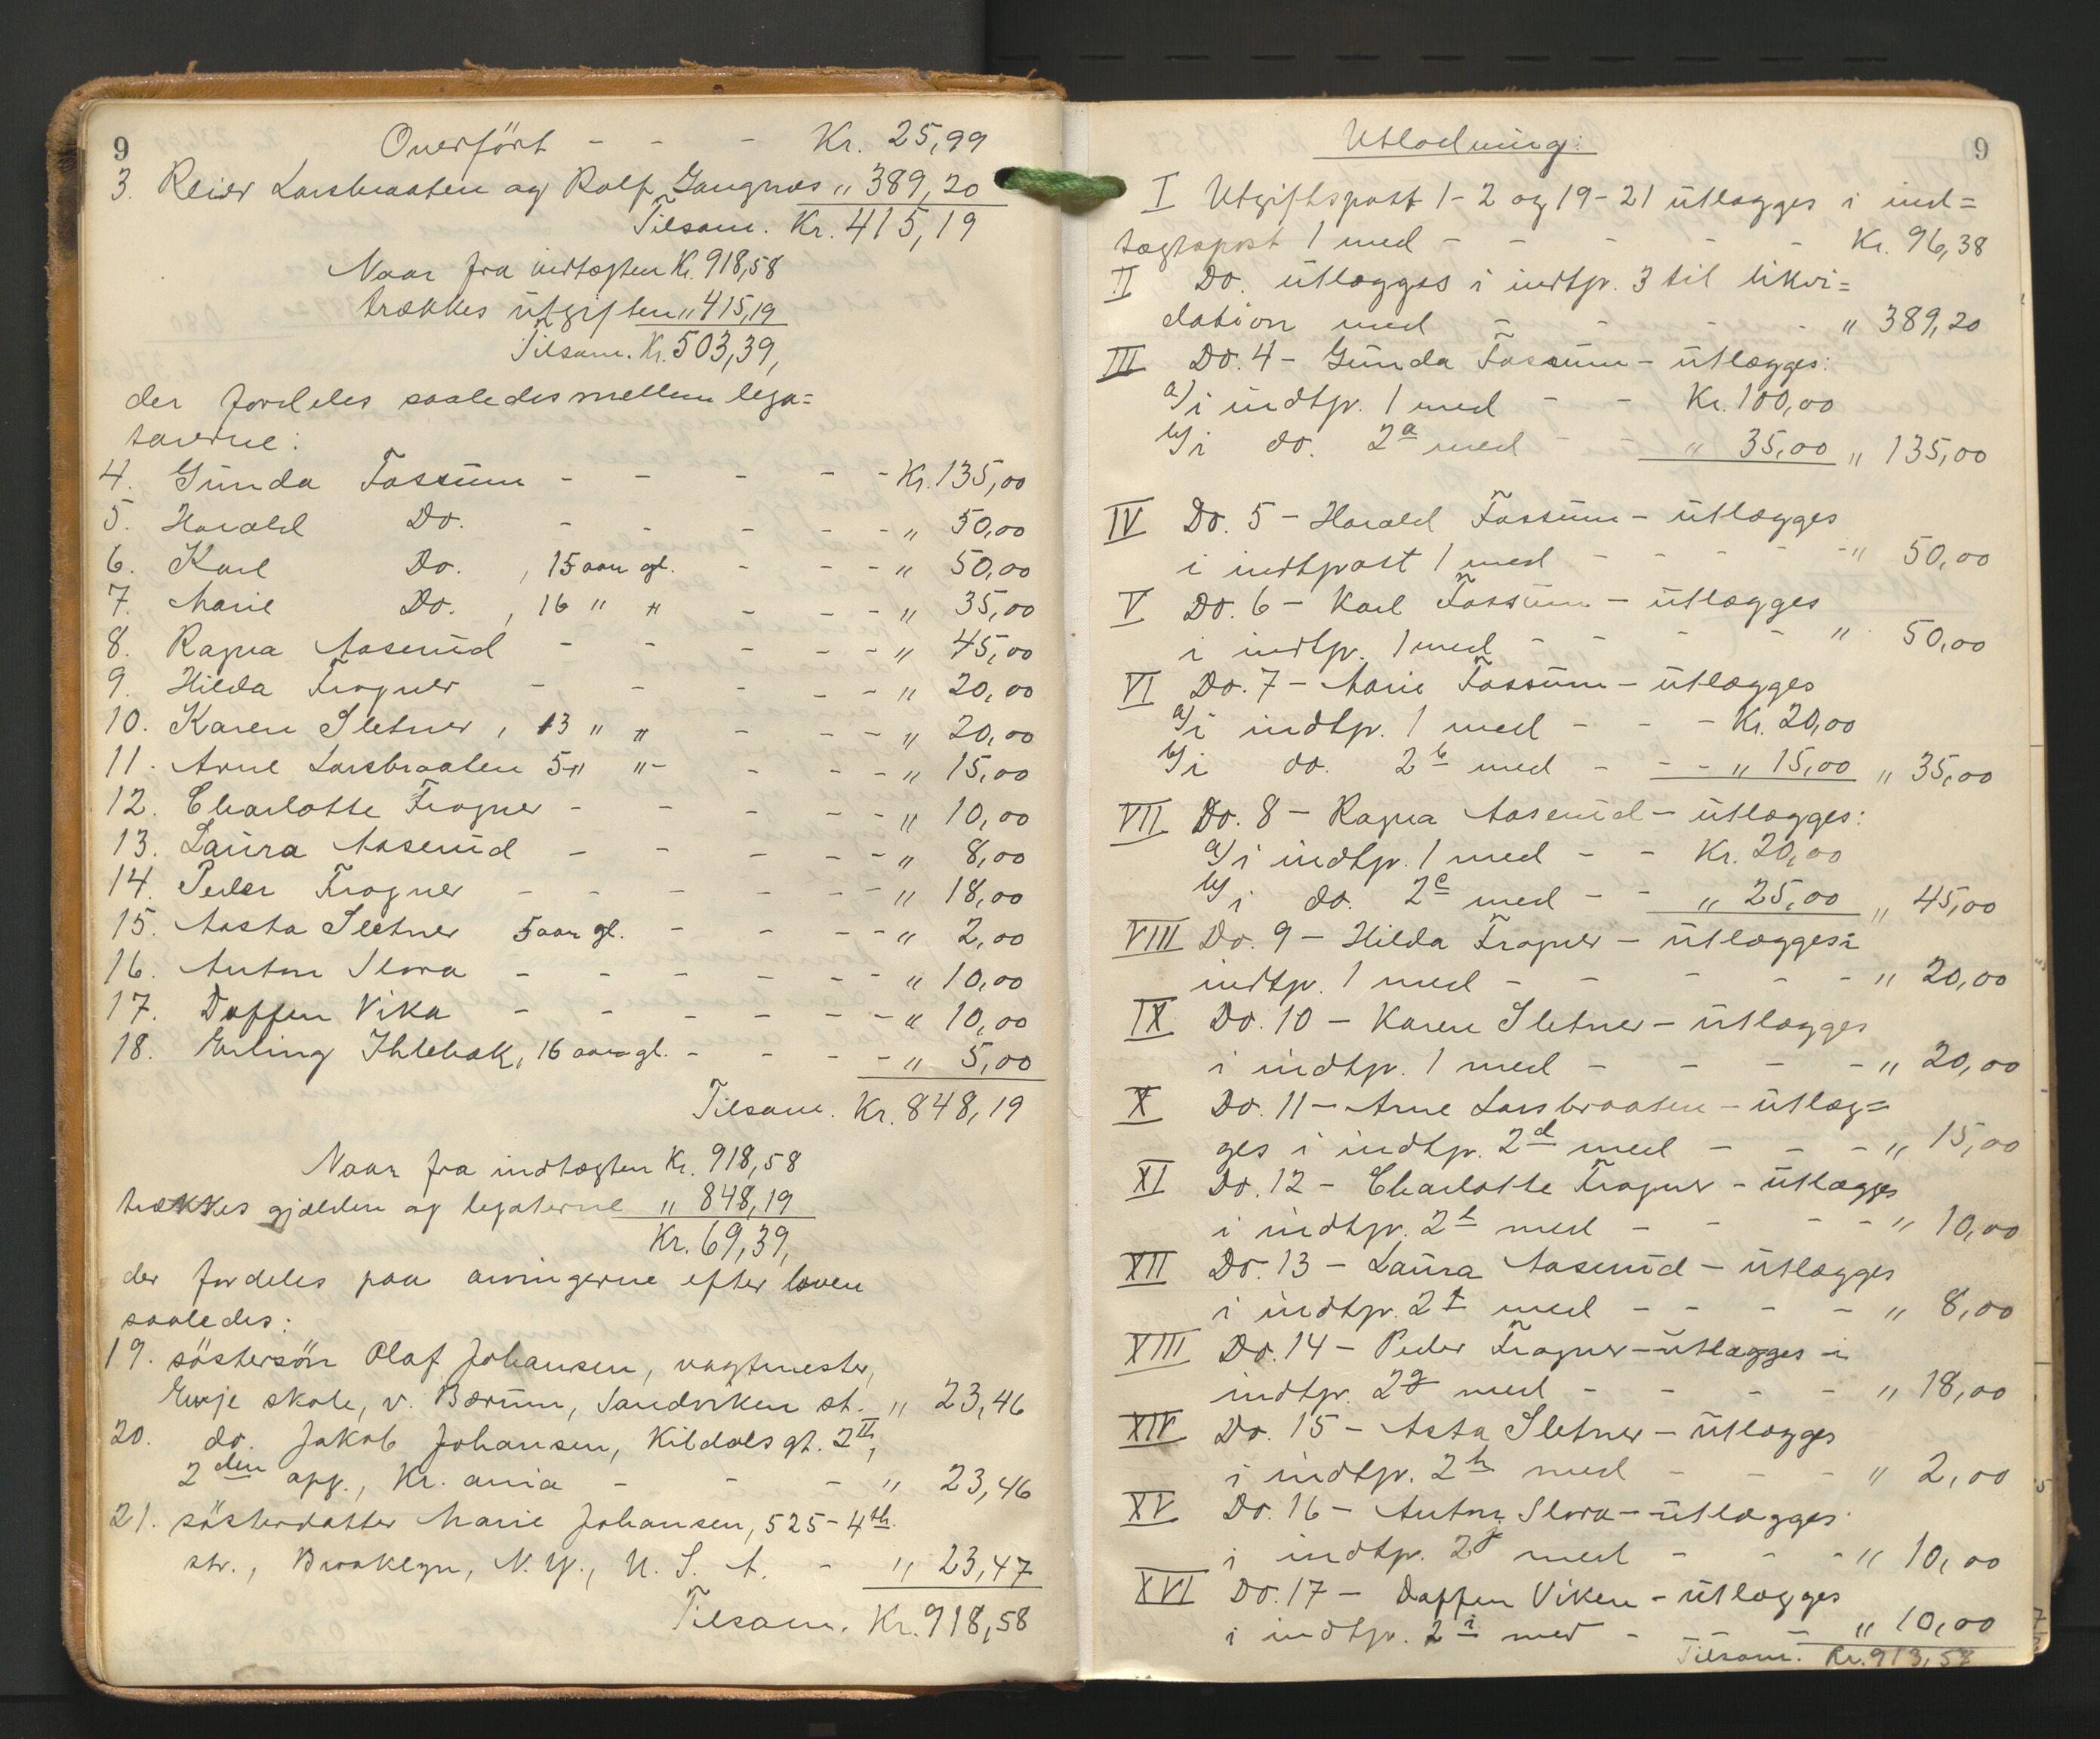 9
Overført - - - Kr. 25,99
3. Reier Larsbraaten og Rolf Gangnæs " 389,20
Tilsam. Kr. 415,19
Naar fra indtægten Kr. 918,58
trækkes utgiften " 415,19
Tilsam. Kr. 503,39,
der fordeles saaledes mellem lega=
tarerne:
4. Gunda Fossum - - - - - Kr. 135,00
5. Harald Do. - - - - - " 50,00
6. Karl Do. , 15 aar gl. - - - " 50,00
7. Marie Do. , 16 " " - - - " 35,00
8. Ragna Aaserud - - - - - " 45,00
9. Hilda Frogner - - - - - " 20,00
10. Karen Sletner , 13 " " - - - " 20,00
11. Arne Larsbraaten 5 " " - - - - " 15,00
12. Charlotte Frogner - - - - - " 10,00
13. Laura Aaserud - - - - - " 8,00
14. Peder Frogner - - - - - - " 18,00
15. Aasta Sletner 5 aar gl. - - - - " 2,00
16. Anton Slora - - - - - - " 10,00
17. Doffen Vika - - - - - - " 10,00
18. Erling Ihlebæk, 16 aar gl. - - - - " 5,00
Tilsam. Kr. 848,19
Naar fra indtægten Kr. 918,58
trækkes gjælden og legaterne " 848,19
Kr. 69,39,
der fordeles paa arvingerne efter loven
saaledes:
19. søstersøn Olaf Johansen, vagtmester,
Evje skole, v. Bærum, Sandviken st. " 23,46
20. do. Jakob Johansen, Kildals gt. 2 II,
2den opg., Kr.ania - - - " 23,46
21. søsterdatter Marie Johansen, 525 - 4th.
str., Brooklyn, N.Y., U.S.A. - " 23,47
Tilsam. Kr. 918,58
9
Utlodning:
I Utgiftspost 1-2 og 19-21 utlægges i ind=
tægtspost 1 med - - - - - Kr. 96,38
II Do. utlægges i indtp. 3 til likvi=
dation med - - - - " 389,20
III Do. 4 - Gunda Fossum - utlægges:
a/ i indtp. 1 med - - Kr. 100,00
b/ i do. 2a med - - " 35,00 " 135,00
IV Do. 5 - Harald Fossum - utlægges
i indtpost 1 med - - - - - " 50,00
V Do. 6 - Karl Fossum - utlægges
i indtp. 1 med - - - - - " 50,00
VI Do. 7 - Marie Fossum - utlægges
a/ i indtp. 1 med - - - Kr. 20,00
b/ i do. 2b med - - - " 15,00 " 35,00
VII Do. 8 - Ragna Aaserud - utlægges:
a/ i indtp. 1 med - - Kr. 20,00
b/ i do. 2c med - - " 25,00 " 45,00
VIII Do. 9 - Hilda Frogner - utlægges i
indtp. 1 med - - - - - " 20,00
IX Do. 10 - Karen Sletner - utlægges
i indtp. 1 med - - - - - " 20,00
X Do. 11 - Arne Larsbraaten - utlæg=
ges i indtp. 2d med - - - " 15,00
XI Do. 12 - Charlotte Frogner - utlægges
i indtp. 2e med - - - - " 10,00
XII Do. 13 - Laura Aaserud - utlægges
i indtp. 2f med - - - - " 8,00
XIII Do. 14 - Peder Frogner - utlægges i
indtp. 2g med - - - - " 18,00
XIV Do. 15 - Asta Sletner - utlægges
i indtp. 2h med - - - " 2,00
XV Do. 16 - Anton Slora - utlægges
i indtp. 2j med - - - " 10,00
XVI Do. 17 - Doffen Viken - utlægges
i indtp. 2i med - - - " 10,00
Tilsam. Kr. 913,58